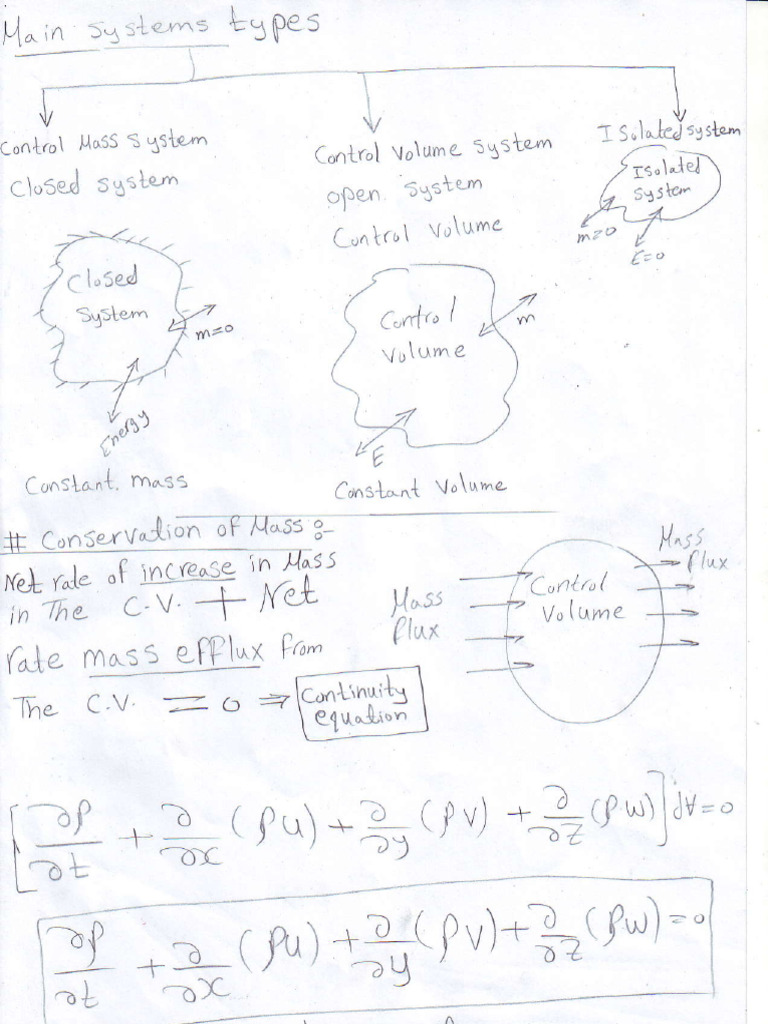 Main systems types
Control Mass System
Closed system
Control Volume System
open system
Control Volume
Isolated system
Isolated
System
m=0
E=0
Closed
System
m=0
Energy
Control
Volume
m
E
Constant. mass
Constant Volume
# Conservation of Mass :-
Net rate of increase in Mass
in The C.V. + Net
rate mass efflux from
The C.V. = 0 ⇒ Continuity
equation
Mass
flux
Control
Volume
Mass
flux
[∂ρ/∂t + ∂/∂x (ρu) + ∂/∂y (ρv) + ∂/∂z (ρw)] dV = 0
∂ρ/∂t + ∂/∂x (ρu) + ∂/∂y (ρv) + ∂/∂z (ρw) = 0